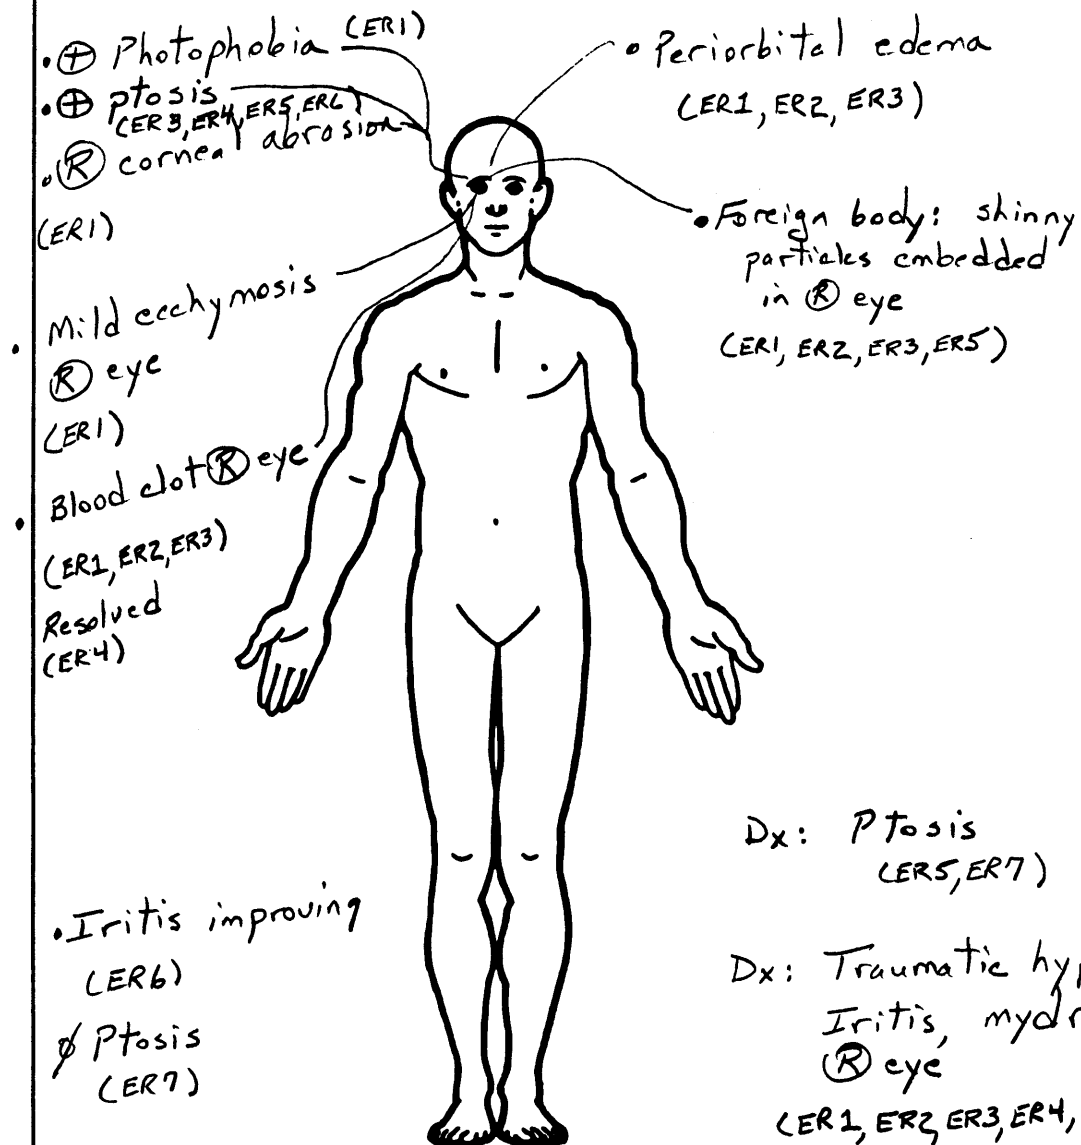 • ⊕ Photophobia (ER1)
• ⊕ ptosis
(ER3, ER4, ER5, ER6)
• Ⓡ corneal abrosion
(ER1)
• Mild ecchymosis
Ⓡ eye
(ER1)
• Blood clot Ⓡ eye
(ER1, ER2, ER3)
Resolved
(ER4)
• Iritis improving
(ER6)
∅ Ptosis
(ER7)
• Periorbital edema
(ER1, ER2, ER3)
• Foreign body: shinny
particles embedded
in Ⓡ eye
(ER1, ER2, ER3, ER5)
Dx: Ptosis
(ER5, ER7)
Dx: Traumatic hyp
Iritis, mydr
Ⓡ eye
(ER1, ER2, ER3, ER4,